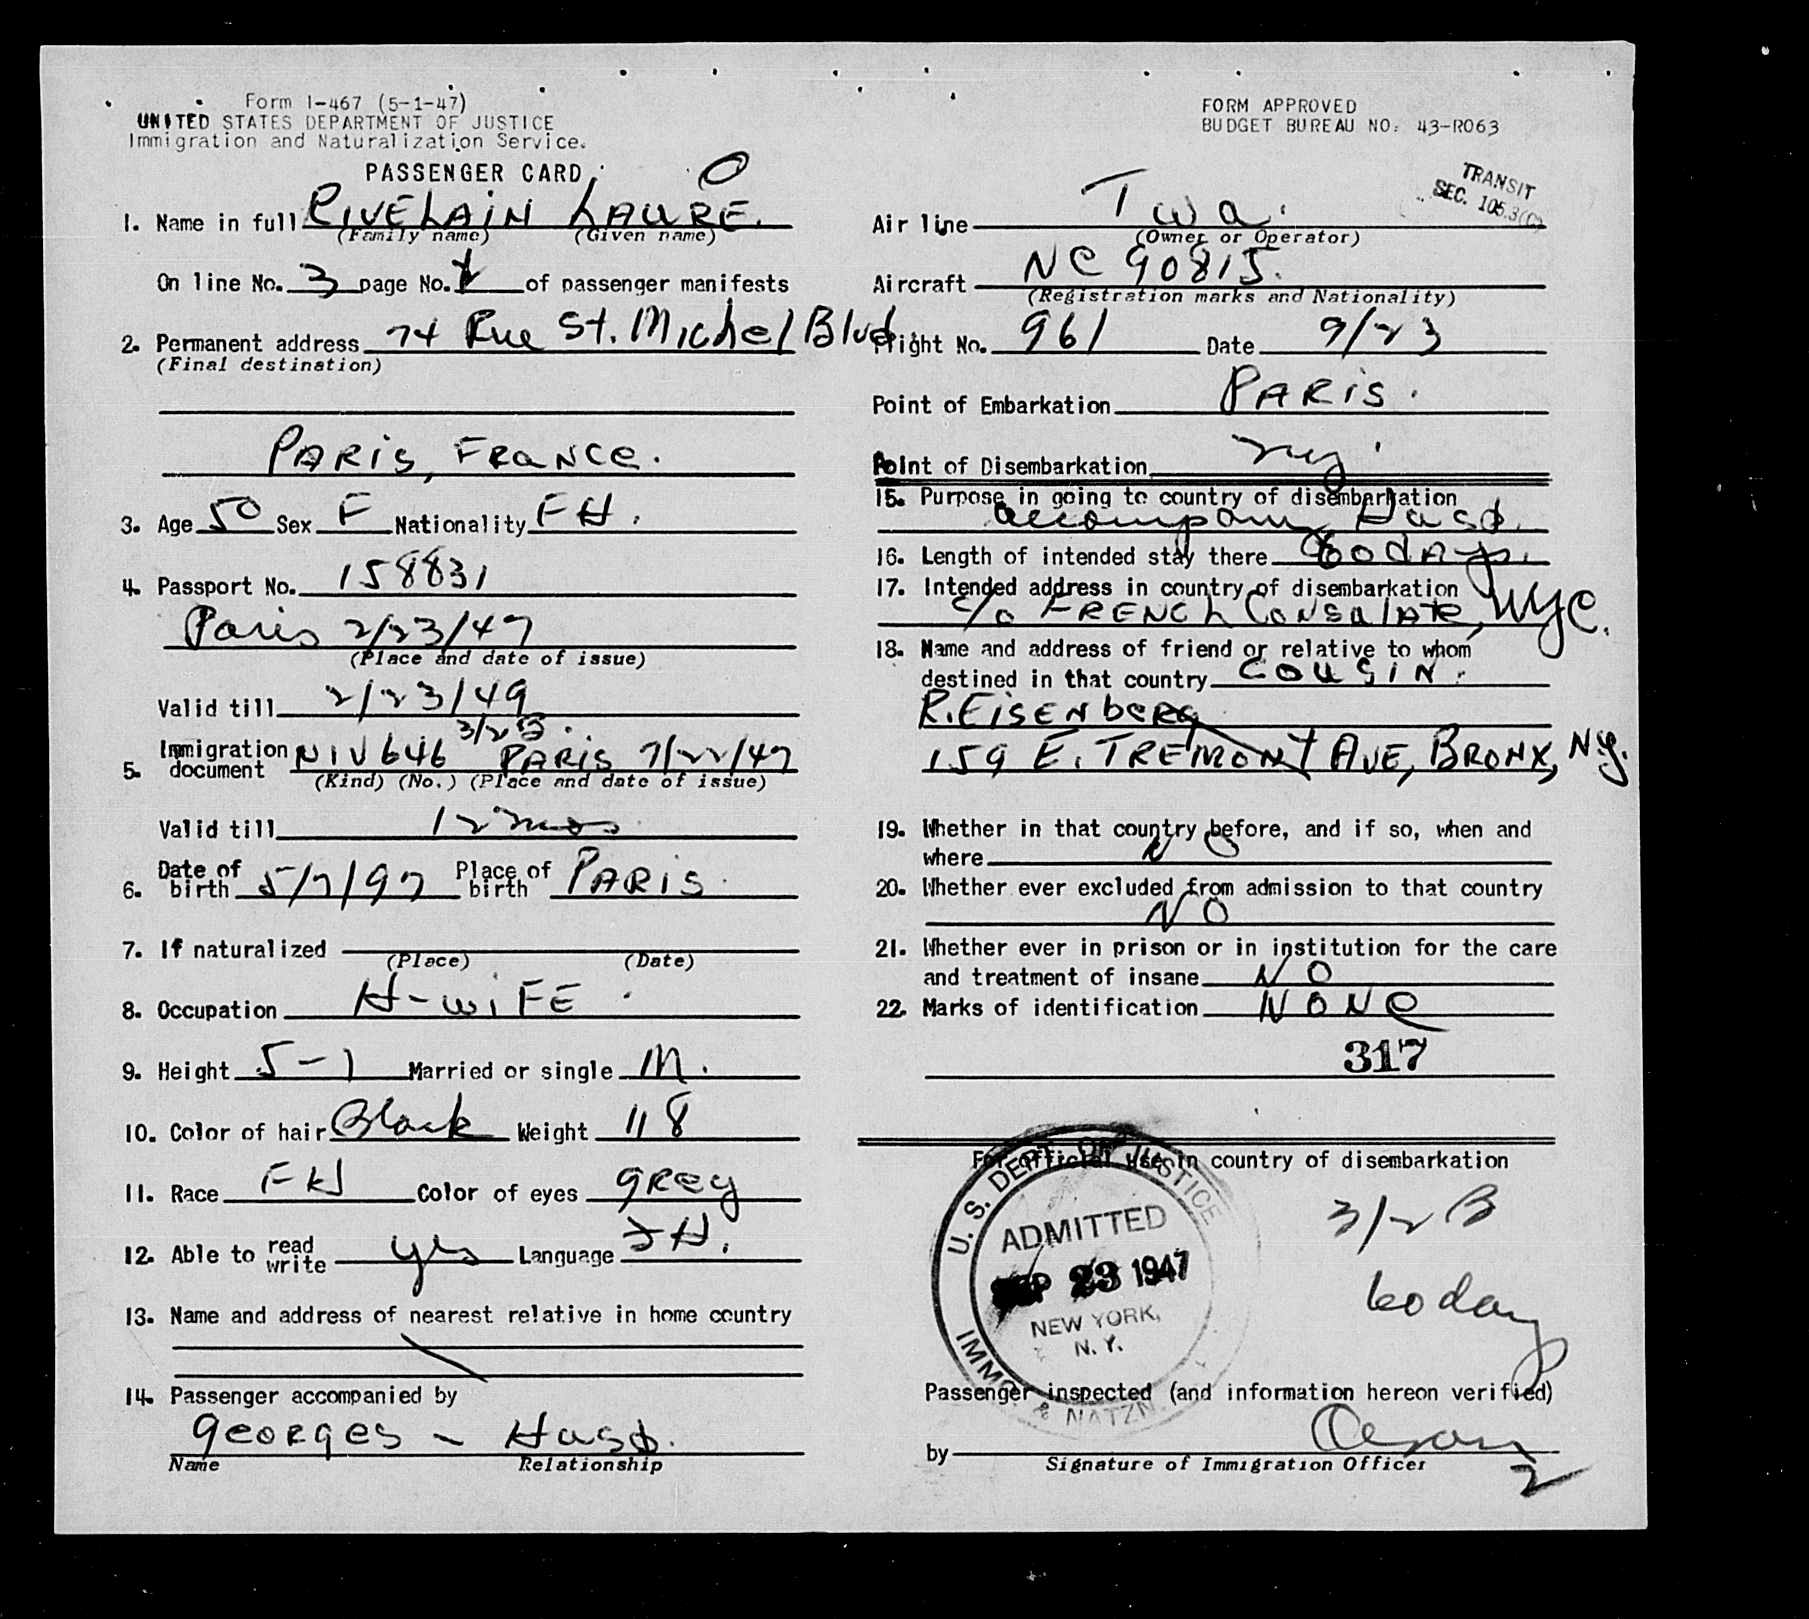 Form I-467 (5-1-47)
UNITED STATES DEPARTMENT OF JUSTICE
Immigration and Naturalization Service.
PASSENGER CARD
1. Name in full RIVELAIN LAURE.
(Family name) (Given name)
On line No. 3 page No. of passenger manifests
2. Permanent address 74 Rue St. Michel Blvd.
(Final destination)
PARIS, FRANCE.
3. Age 50 Sex F Nationality FH.
4. Passport No. 158831
Paris 2/23/47
(Place and date of issue)
Valid till 2/23/49
3/2B.
5. Immigration document NIV 646 PARIS 7/22/47
(Kind) (No.) (Place and date of issue)
Valid till 12 mos
6. Date of birth 5/7/97 Place of birth PARIS.
7. If naturalized
(Place) (Date)
8. Occupation H-WIFE.
9. Height 5-1 Married or single M.
10. Color of hair Black Weight 118
11. Race FH Color of eyes GREY
12. Able to read write yes Language FH.
13. Name and address of nearest relative in home country
14. Passenger accompanied by
Georges - Husb.
Name Relationship
FORM APPROVED
BUDGET BUREAU NO. 43-R063
TRANSIT
SEC. 105.3(C)
Air line TWA.
(Owner or Operator)
Aircraft NC 90815.
(Registration marks and Nationality)
Flight No. 961 Date 9/23
Point of Embarkation PARIS.
Point of Disembarkation NY.
15. Purpose in going to country of disembarkation
accompany Husb.
16. Length of intended stay there 60 days.
17. Intended address in country of disembarkation
c/o FRENCH CONSULATE, NYC.
18. Name and address of friend or relative to whom
destined in that country COUSIN.
R. EISENBERG
159 E. TREMONT AVE, BRONX, NY.
19. Whether in that country before, and if so, when and
where NO
20. Whether ever excluded from admission to that country
NO
21. Whether ever in prison or in institution for the care
and treatment of insane NO
22. Marks of identification NONE
317
For official use in country of disembarkation
U. S. DEPT. OF JUSTICE
ADMITTED
SEP 23 1947
NEW YORK,
N. Y.
IMMG. & NATZN.
3/2 B
60 days
Passenger inspected (and information hereon verified)
by
Signature of Immigration Officer
2